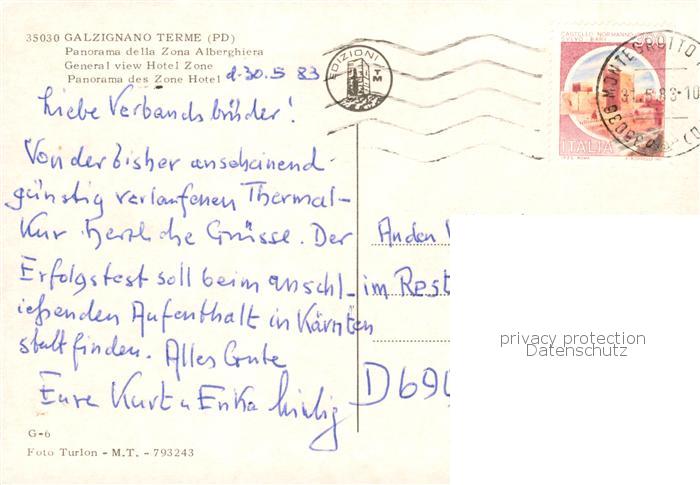 35030 GALZIGNANO TERME (PD)
Panorama della Zona Alberghiera
General view Hotel Zone
Panorama des Zone Hotel
d. 30.5 83
Liebe Verbandsbrüder!
Von der bisher anscheinend
günstig verlaufenen Thermal-
Kur herzliche Grüsse. Der
Erfolgstest soll beim anschl-
ießenden Aufenthalt in Kärnten
stattfinden. Alles Gute
Eure Kurt u Erika
G-6
Foto Turlon - M.T. - 793243
EDIZIONI
TM
CASTELLO NORMANNO
ITALIA
35036 MONTEGROTTO
31.5.83-10
An den
im Rest
D 690
privacy protection
Datenschutz